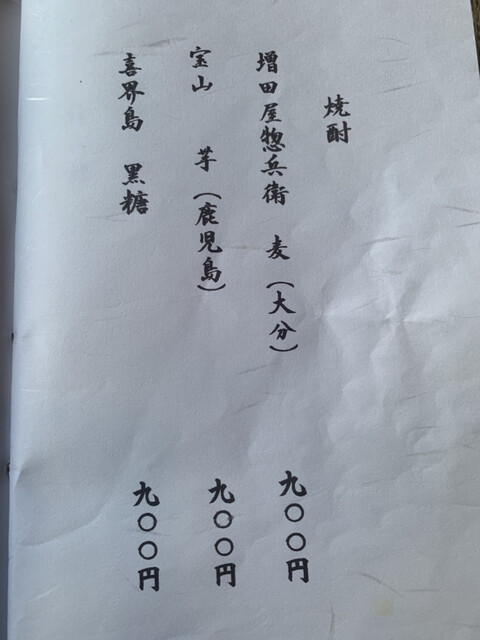 焼酎
増田屋惣兵衛 麦(大分) 九〇〇円
宝山 芋(鹿児島) 九〇〇円
喜界島 黒糖 九〇〇円